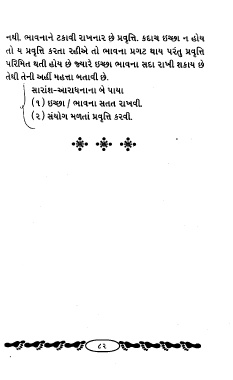 નથી. ભાવનાને ટકાવી રાખનાર છે પ્રવૃત્તિ. કદાચ ઇચ્છા ન હોય
તો ય પ્રવૃત્તિ કરતા રહીએ તો ભાવના પ્રગટ થાય પરંતુ પ્રવૃત્તિ
પરિમિત થતી હોય છે જ્યારે ઇચ્છા ભાવના સદા રાખી શકાય છે
તેથી તેની અહીં મહત્તા બતાવી છે.
સારાંશ-આરાધનાના બે પાયા
(૧) ઇચ્છા / ભાવના સતત રાખવી.
(૨) સંયોગ મળતાં પ્રવૃત્તિ કરવી.
૮૨